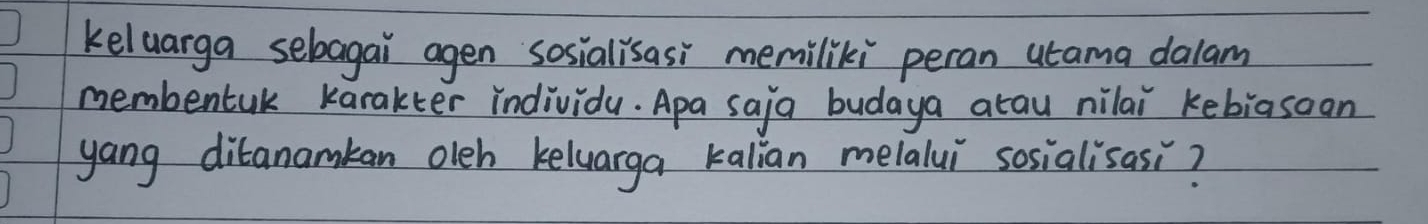 keluarga sebagai agen sosialisasi memiliki peran utama dalam
membentuk karakter individu. Apa saja budaya atau nilai kebiasaan
yang ditanamkan oleh keluarga kalian melalui sosialisasi?